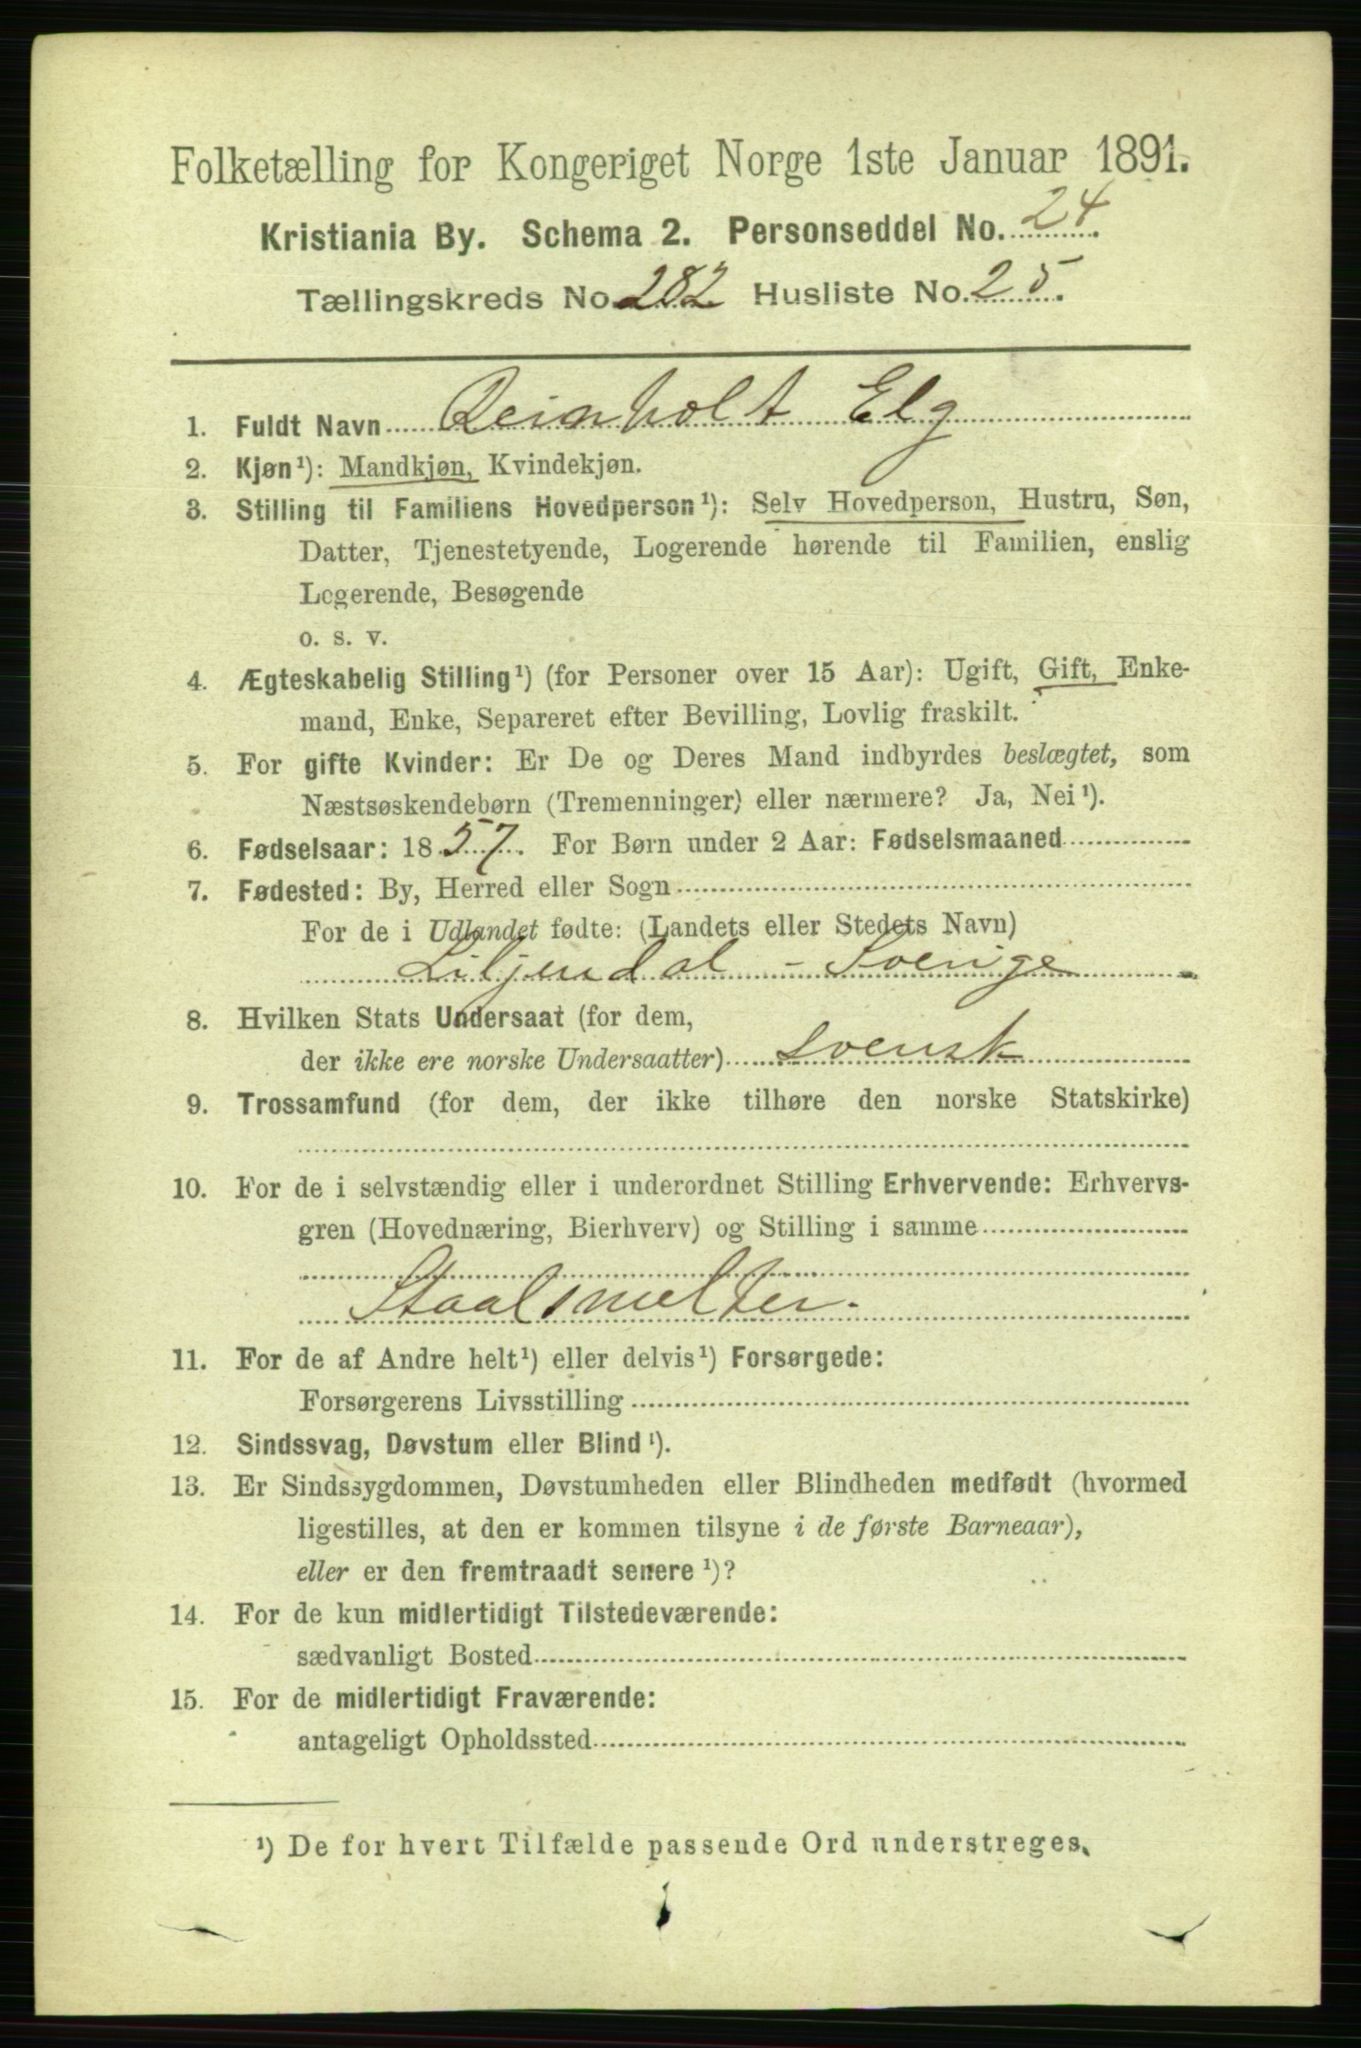 Folketælling for Kongeriget Norge 1ste Januar 1891.
Kristiania By. Schema 2. Personseddel No. 24
Tællingskreds No. 282 Husliste No. 25
1. Fuldt Navn Reinholt Elg
2. Kjøn¹): Mandkjøn, Kvindekjøn.
3. Stilling til Familiens Hovedperson¹): Selv Hovedperson, Hustru, Søn,
Datter, Tjenestetyende, Logerende hørende til Familien, enslig
Logerende, Besøgende
o. s. v.
4. Ægteskabelig Stilling¹) (for Personer over 15 Aar): Ugift, Gift, Enke-
mand, Enke, Separeret efter Bevilling, Lovlig fraskilt.
5. For gifte Kvinder: Er De og Deres Mand indbyrdes beslægtet, som
Næstsøskendebørn (Tremenninger) eller nærmere? Ja, Nei¹).
6. Fødselsaar: 1857. For Børn under 2 Aar: Fødselsmaaned
7. Fødested: By, Herred eller Sogn
For de i Udlandet fødte: (Landets eller Stedets Navn)
Liljendal - Sverige
8. Hvilken Stats Undersaat (for dem,
der ikke ere norske Undersaatter) svensk
9. Trossamfund (for dem, der ikke tilhøre den norske Statskirke)
10. For de i selvstændig eller i underordnet Stilling Erhvervende: Erhvervs-
gren (Hovednæring, Bierhverv) og Stilling i samme
Staalsmelter.
11. For de af Andre helt¹) eller delvis¹) Forsørgede:
Forsørgerens Livsstilling
12. Sindssvag, Døvstum eller Blind¹).
13. Er Sindssygdommen, Døvstumheden eller Blindheden medfødt (hvormed
ligestilles, at den er kommen tilsyne i de første Barneaar),
eller er den fremtraadt senere¹)?
14. For de kun midlertidigt Tilstedeværende:
sædvanligt Bosted
15. For de midlertidigt Fraværende:
antageligt Opholdssted
¹) De for hvert Tilfælde passende Ord understreges.